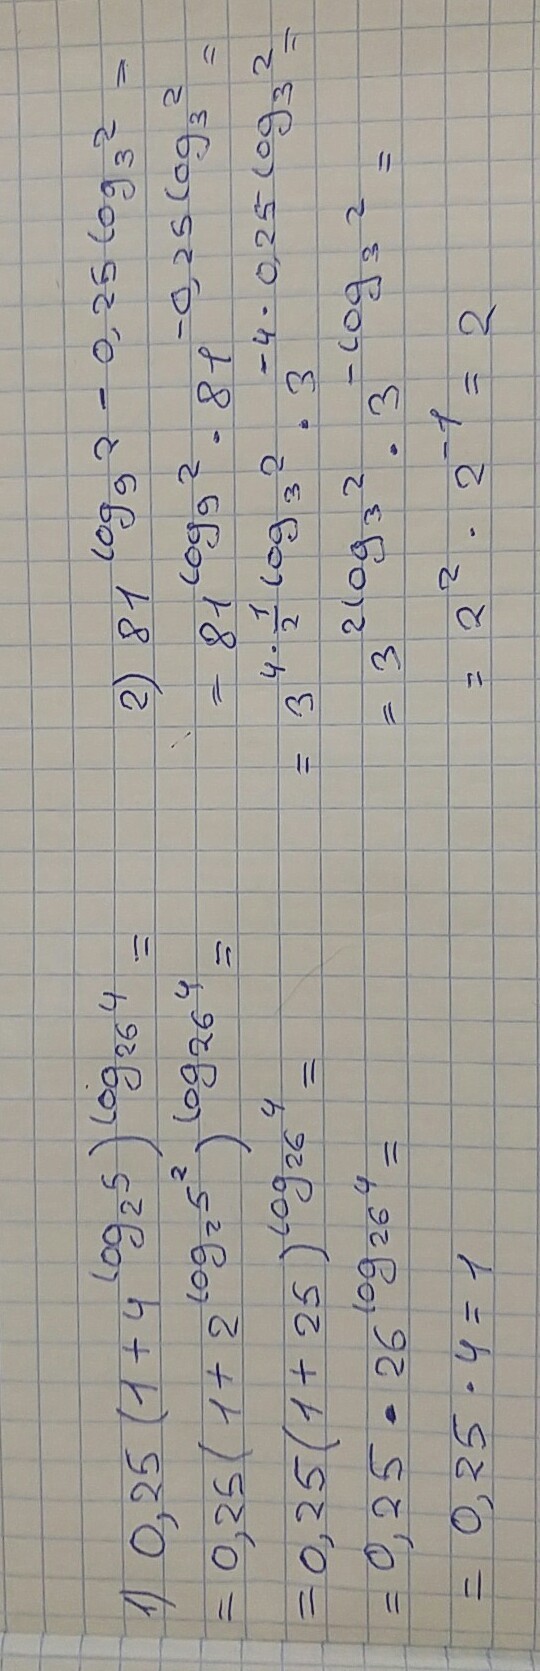 1) 0,25 (1 + 4^{log_2 5})^{log_{26} 4} =
= 0,25 (1 + 2^{log_2 5^2})^{log_{26} 4} =
= 0,25 (1 + 25)^{log_{26} 4} =
= 0,25 • 26^{log_{26} 4} =
= 0,25 • 4 = 1
2) 81^{log_9 2 - 0,25 log_3 2} =
= 81^{log_9 2} • 81^{-0,25 log_3 2} =
= 3^{4 • \frac{1}{2} log_3 2} • 3^{-4 • 0,25 log_3 2} =
= 3^{2 log_3 2} • 3^{-log_3 2} =
= 2^2 • 2^{-1} = 2